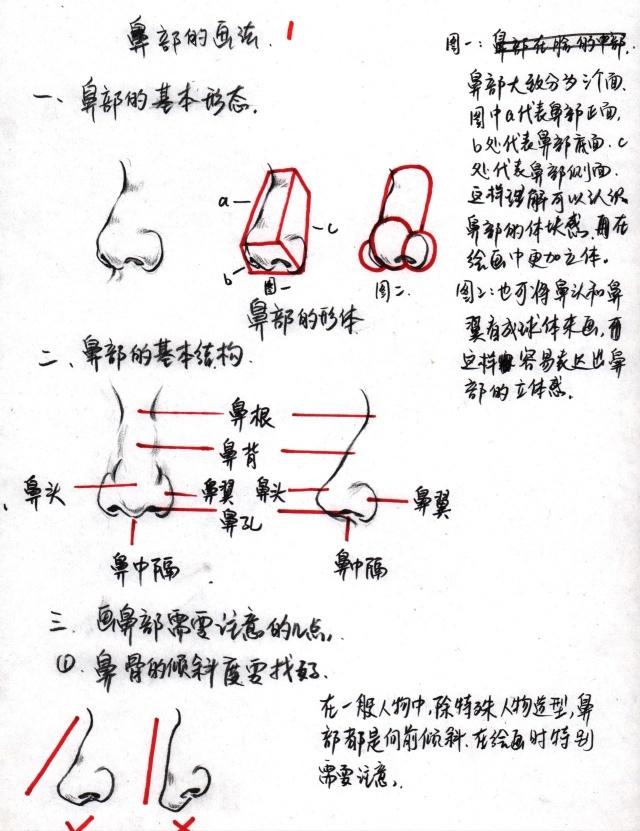 鼻部的画法. 1
一、鼻部的基本形态.
图一:
鼻部大致分为三个面.
图中a代表鼻部正面,
b处代表鼻部底面. c
处代表鼻部侧面.
这样理解可以认识
鼻部的体块感, 再在
绘画中更加立体。
图二:也可将鼻头和鼻
翼看成球体来画,
这样容易表达出鼻
部的立体感.
a
c
b
图一
图二.
鼻部的形体
二、鼻部的基本结构.
鼻根
鼻背
鼻头
鼻翼
鼻头
鼻翼
鼻孔
鼻中隔
鼻中隔
三. 画鼻部需要注意的几点.
①. 鼻骨的倾斜度要找好.
在一般人物中,除特殊人物造型,鼻
部都是向前倾斜. 在绘画时特别
需要注意.